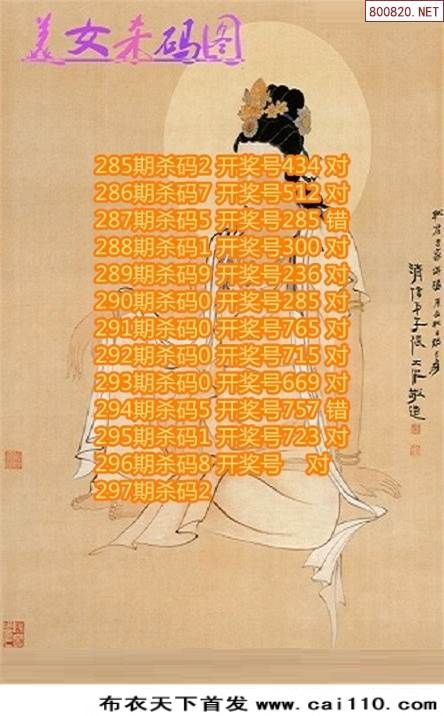 800820.NET
美女杀码图
285期杀码2 开奖号434 对
286期杀码7 开奖号512 对
287期杀码5 开奖号285 错
288期杀码1 开奖号300 对
289期杀码9 开奖号236 对
290期杀码0 开奖号285 对
291期杀码0 开奖号765 对
292期杀码0 开奖号715 对
293期杀码0 开奖号669 对
294期杀码5 开奖号757 错
295期杀码1 开奖号723 对
296期杀码8 开奖号 对
297期杀码2
布衣天下首发 www.cai110.com